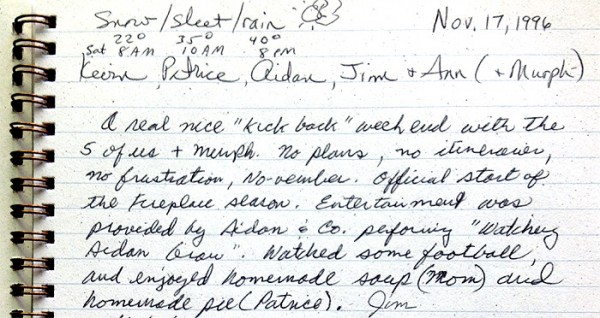 Snow/sleet/rain Nov. 17, 1996
22° 35° 40°
Sat 8 AM 10 AM 8 PM
Kevin, Patrice, Aidan, Jim + Ann (+ Murph)
A real nice "Kick back" weekend with the
5 of us + murph. No plans, no itineraries,
no frustration, No-vember. Official start of
the fireplace season. Entertainment was
provided by Aidan & Co. performing "Watching
Aidan Grow". Watched some football,
and enjoyed homemade soup (Mom) and
homemade pie (Patrice). Jim